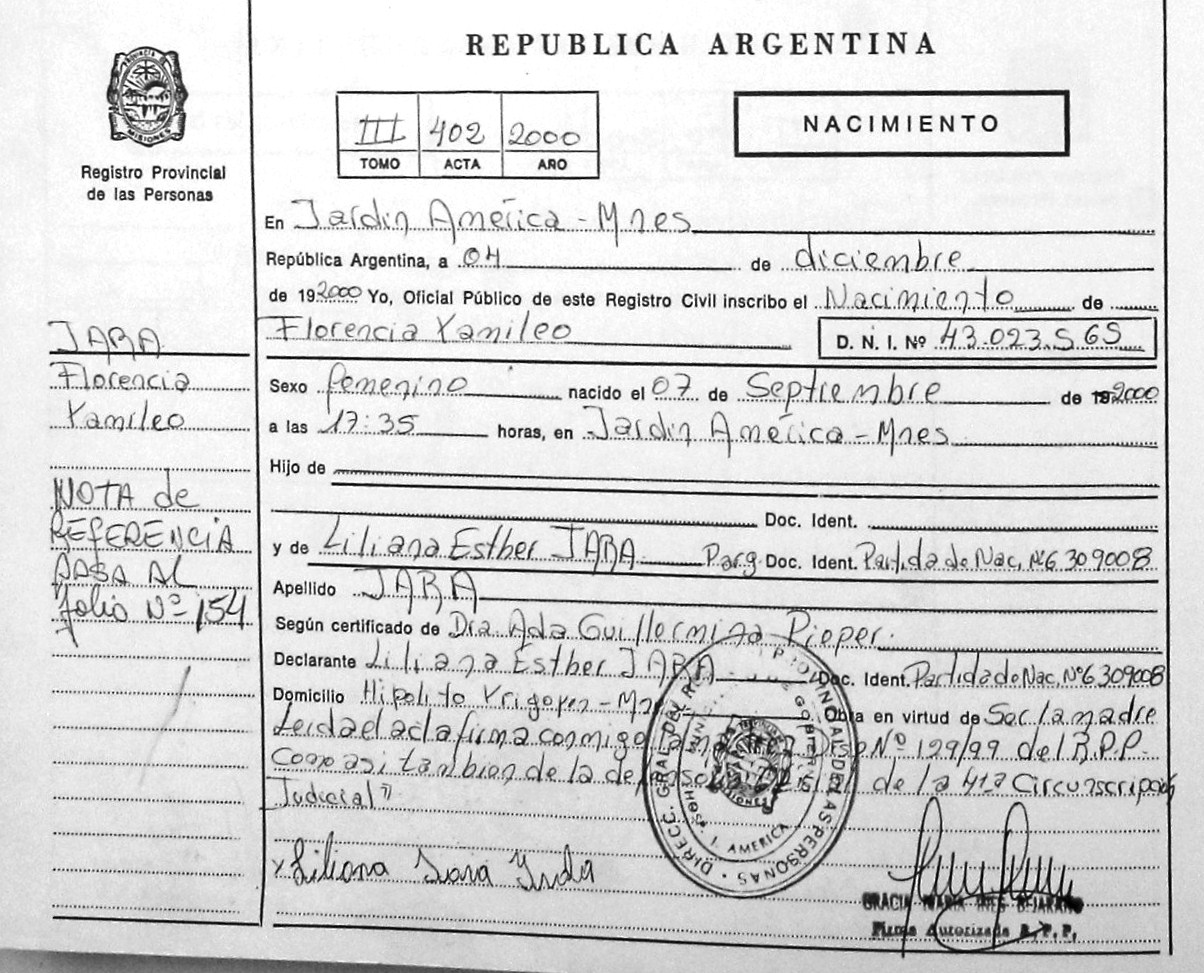 REPUBLICA ARGENTINA
PROVINCIA DE MISIONES
Registro Provincial
de las Personas
III 402 2000
TOMO ACTA AÑO
NACIMIENTO
En Jardin América - Mnes
República Argentina, a 04 de diciembre
de 192000 Yo, Oficial Público de este Registro Civil inscribo el Nacimiento de
Florencia Yamileo D. N. I. Nº 43.023.565
JARA
Florencia
Yamileo
Sexo femenino nacido el 07 de Septiembre de 192000
a las 17:35 horas, en Jardin América - Mnes
Hijo de
Doc. Ident.
y de Liliana Esther JARA Parg. Doc. Ident. Partida de Nac. Nº6309008
Apellido JARA
NOTA de
REFERENCIA
PASA AL
folio Nº 154
Según certificado de Dra. Ada Guillermina Pieper
Declarante Liliana Esther JARA Doc. Ident. Partida de Nac. Nº6309008
Domicilio Hipolito Yrigoyen - Mnes Obra en virtud de Ser la madre
Leida el acta firma conmigo la Disp Nº 129/99 del R.P.P.
Como asi tambien de la de la 4ta Circunscripción
Judicial"
DIRECC. GRAL. DEL R. PROVINCIAL DE LAS PERSONAS
HOSP. J. AMERICA
MISIONES
x Liliana Jara
GRACIA MARIA INES BEJARANO
Firma Autorizada R. P. P.